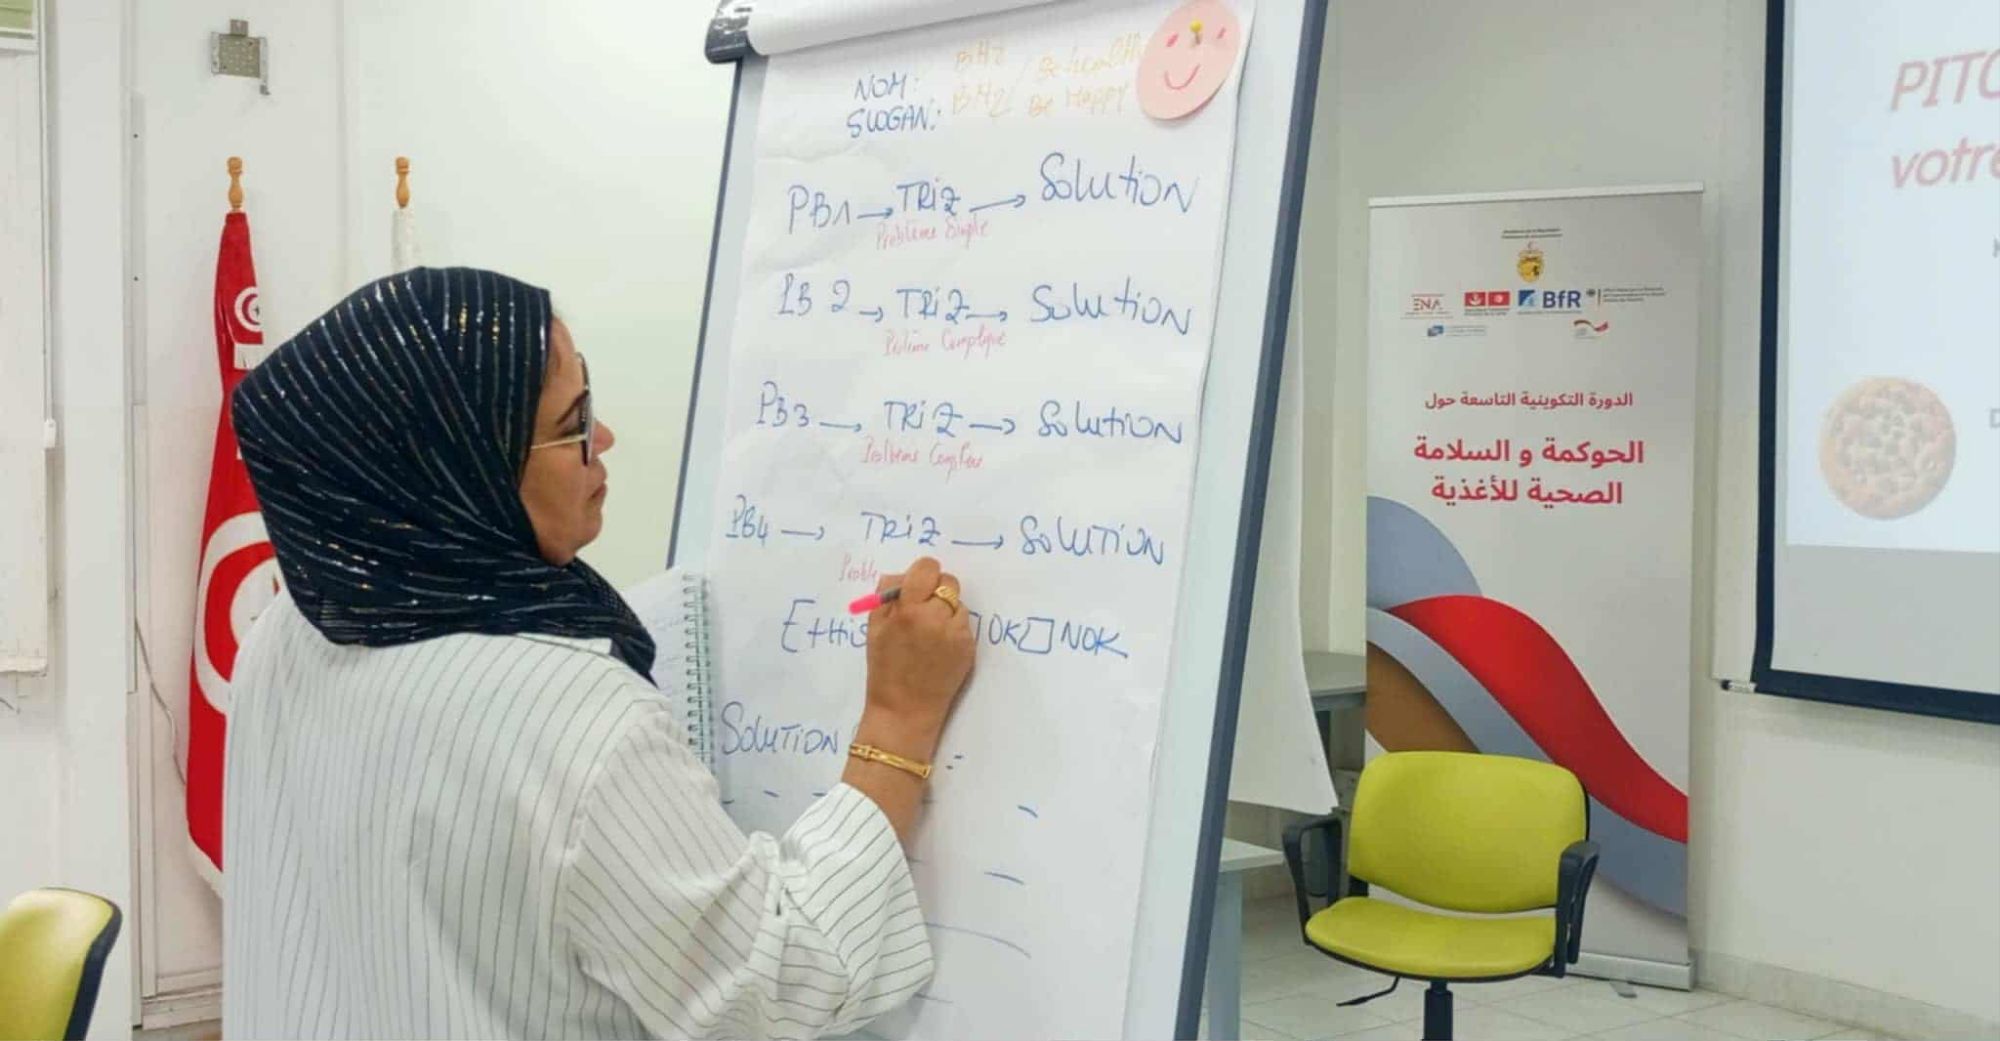 NOM: BHZ / Be Healthy
SLOGAN: BHZ / Be Happy
PB1 → TRiZ → Solution
Problème Simple
PB 2 → TRiZ → Solution
Problème Compliqué
PB3 → TRiZ → Solution
Problème Complexe
PB4 → TRiZ → SOLUTION
Proble
OK □ NOK
SOLUTION
ENA
BfR
الدورة التكوينية التاسعة حول
الحوكمة و السلامة
الصحية للأغذية
PITC
votre